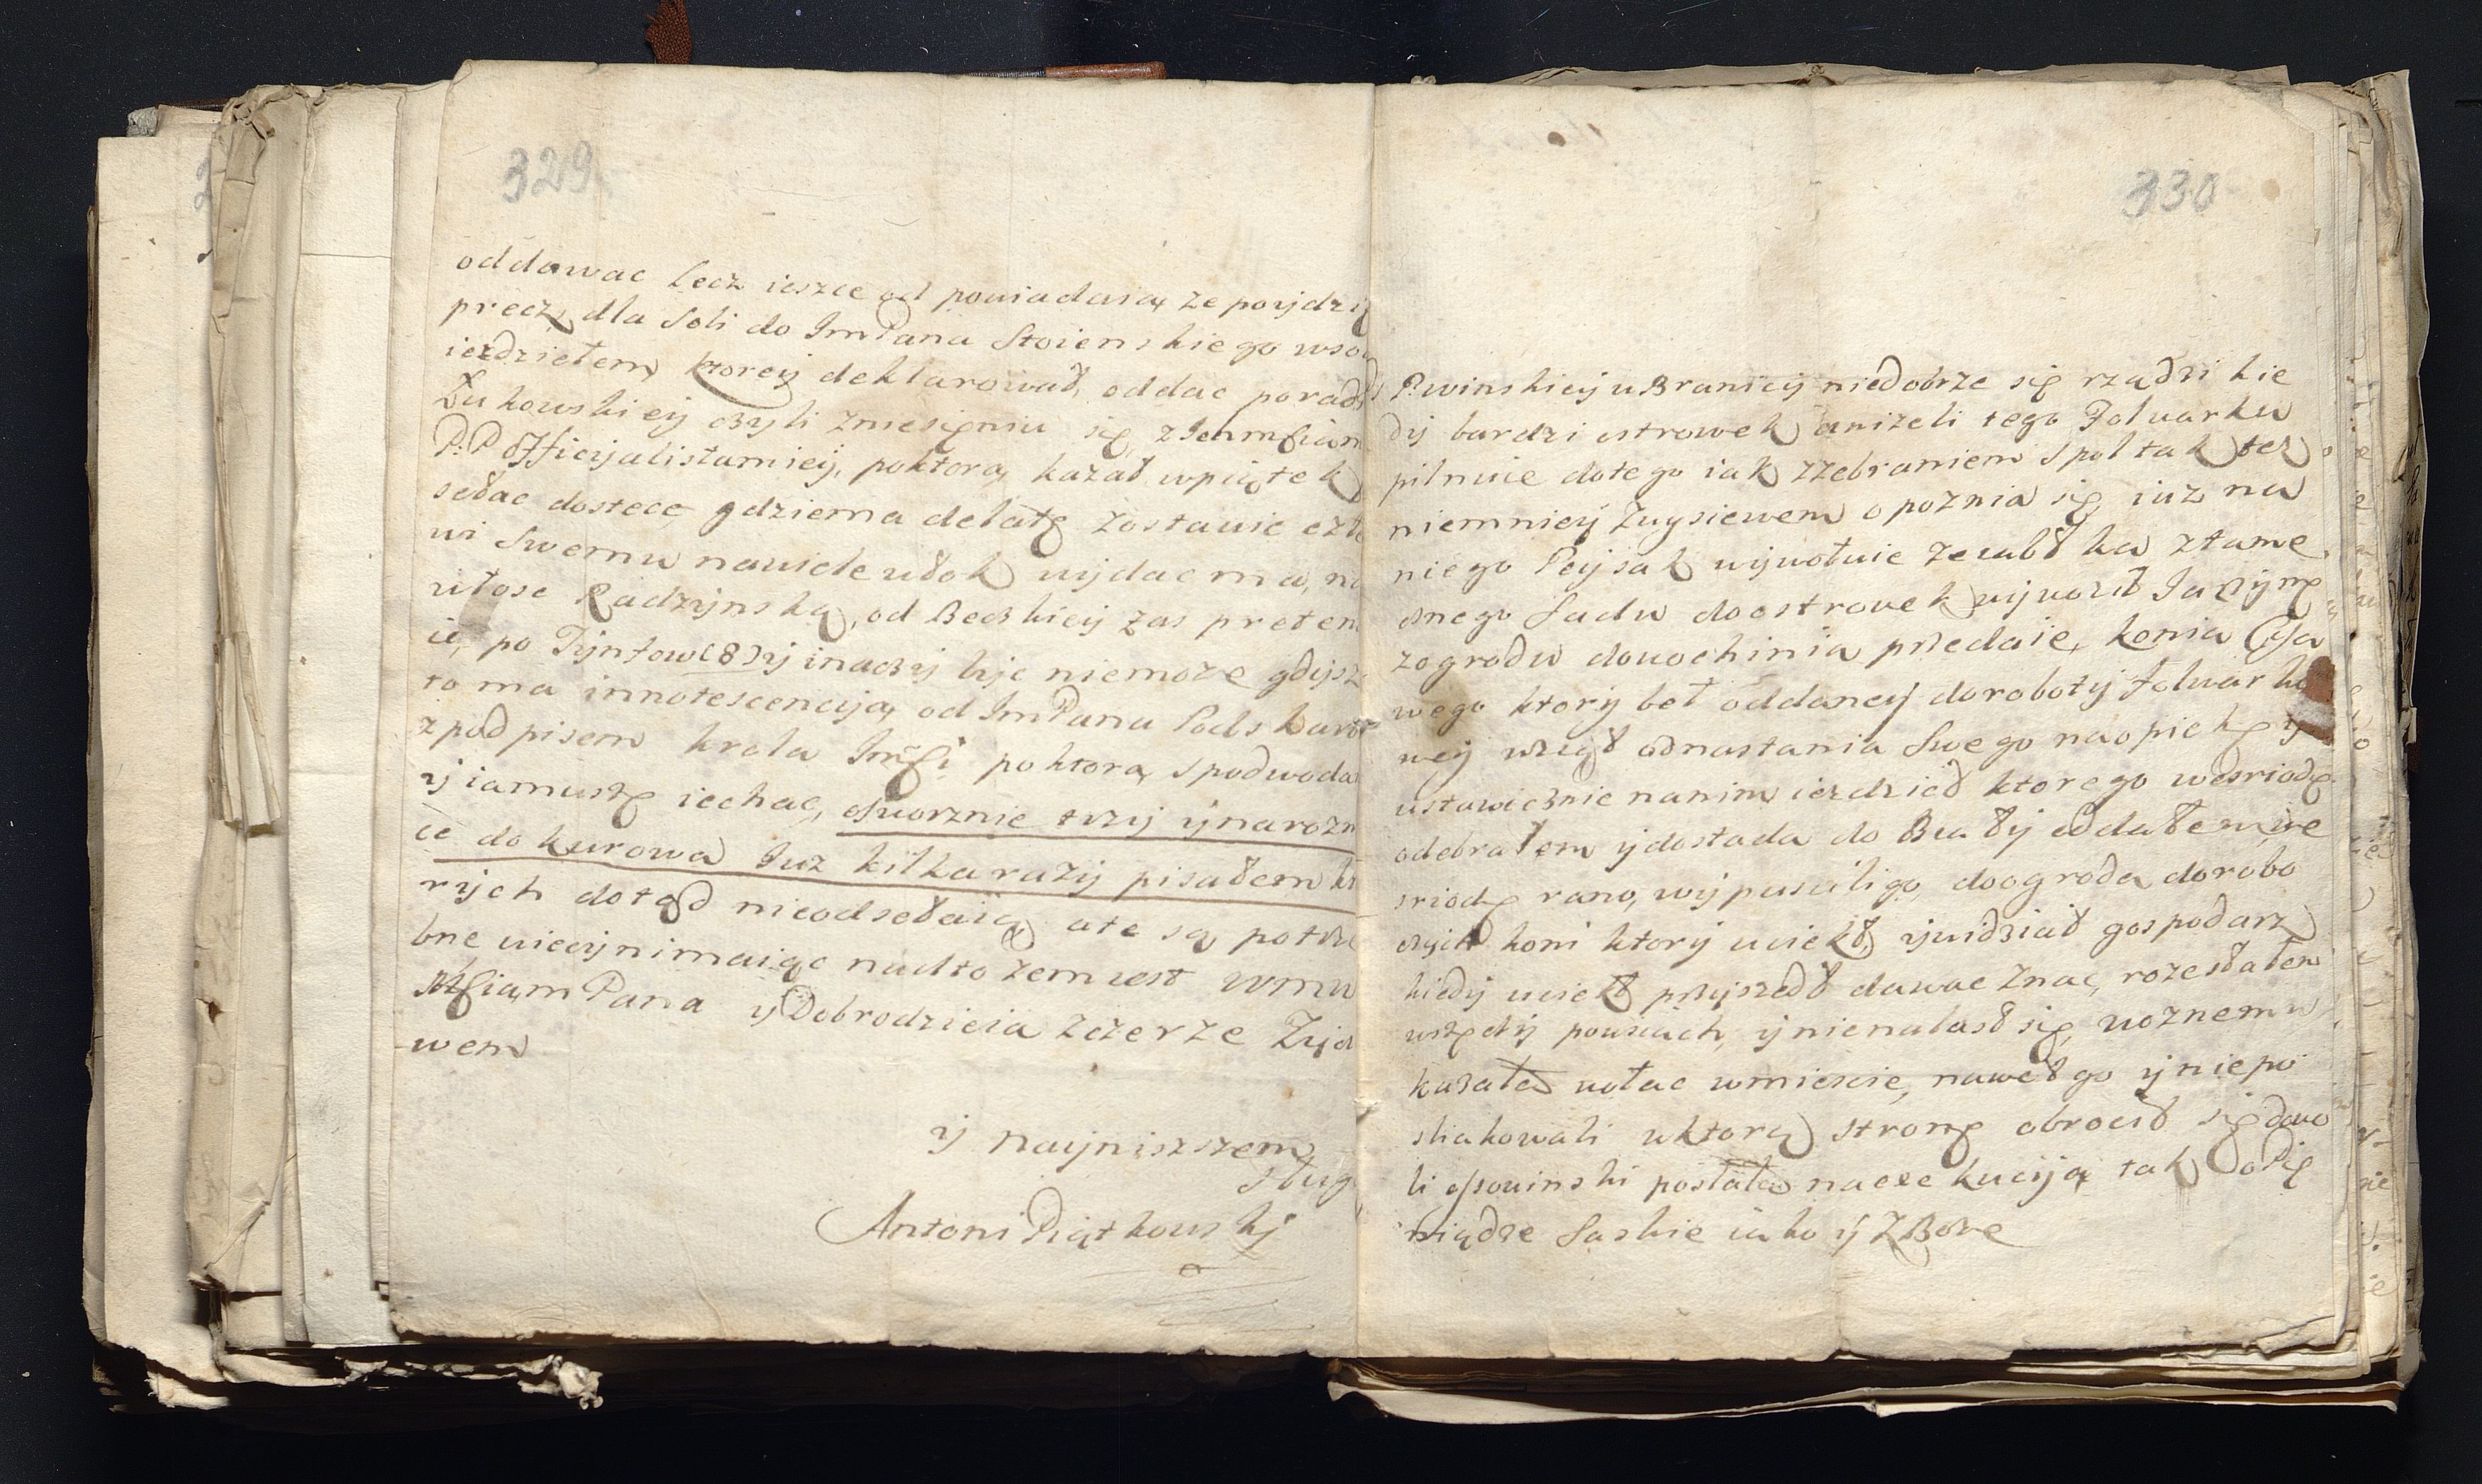 329
oddawac lecz ieszce od powiadaią ze poijdzi
precz, dla Soli do ImPana Stoienskiego wso
iezdziełem, ktoreij deklarował, oddac porad
Zukowskieij czyli zniesięniu się
P.P Officijalistamieij, poktorą kazał wpiątek
sełac dostece gdziema delatę zostawic
wi Swemu nawidewłok wijdac ma, na
włosc Radzijnską, od Beckieij zas preten
ie, po Tijnfow (8) ij inaczij bijc niemoze gdijsz
to ma innotescencijją od ImPana Podskarb
z podpisem krola Imsci poktorą spodwoda
ij iamuszę iechac, osworznie trzij ijnarozn
ce do kurowa Iuz kilkarazij pisałem kt
rijch dotąd nieodsełaią ate są potrze
bne wieceijnimaiąc nadto zem iest wmw
Msciam Pana ij Dobrodzieia Zczerze Zijcz
wem
ij naijniszszem
Sług
Antoni Piątkowskj
330
P. winskieij uBraniceij niedobrze się rządzi kie
dij bardzi ostrowek anizeli tego Folwarku
pilnuie dotego iak zzebraniem spol tak tez
niemnieij Zuijsiewem opoznia się iuz na
niego Peijsak wijwołuie zeiabłka ztame
cznego Sadu doostrowek wijwoził Iazijnę
zogrodu dowochinia przedaie, konia
wego ktorij beł oddaneij dorobotij folwarko
weij wziął odnastania Swego naopiekę ij
ustawicznie nanim iezdzieł ktorego wesriodę
odebrałem ijdostada do Białij oddałem, we
sriodę rano, wijpuscili go, doogroda dorobo
czijch koni ktorij uciekł, ijwidział gospodarz
kiedij uciekł przijszedł dawac Znac, rozesłałem
wszędij powsiach, ijnienalasł się, woznemu
kazałem wołac wmiescie, nawet go ij niepo
sliakowali wktorą stronę obrocił się dowo
li osowinski posłałem naexekucijją tak oPię
niądze Saskie iako ij Zboze